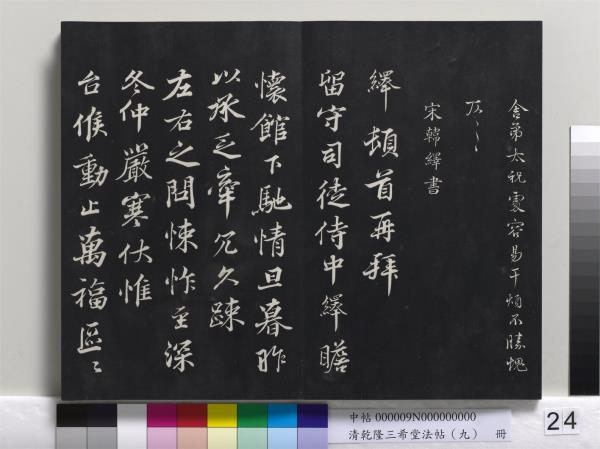 舍弟太祝處容易干煩不勝愧
宋韓繹書
繹頓首再拜
留守司徒侍中繹瞻
懷館下馳情旦暮昨
以承乏牽冗久疎
左右之問悚怍至深
冬仲嚴寒伏惟
台候動止萬福區〻
中帖 000009N000000000
清乾隆三希堂法帖(九) 冊
24